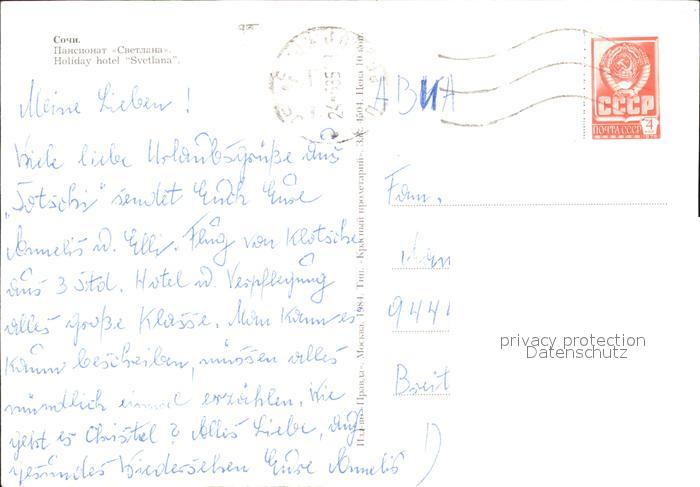 Сочи.
Пансионат «Светлана».
Holiday hotel "Svetlana".
Meine Lieben!
Viele liebe Urlaubsgrüße aus
„Sotschi" sendet Euch Eure
Annelis u. Elli. Flug von Klotsche
aus 3 Std. Hotel u. Verpflegung
alles große Klasse. Man kann es
kaum beschreiben, müssen alles
mündlich einmal erzählen. Wie
geht es Christel? Alles Liebe, auf
gesundes Wiedersehen Eure Annelis
Изд-во «Правда». Москва. 1984. Тип. «Красный пролетарий». Зак. 4504. Цена 10 коп.
АВИА
СССР
ПОЧТА СССР 4
Fam.
9441
Breit
D
privacy protection
Datenschutz